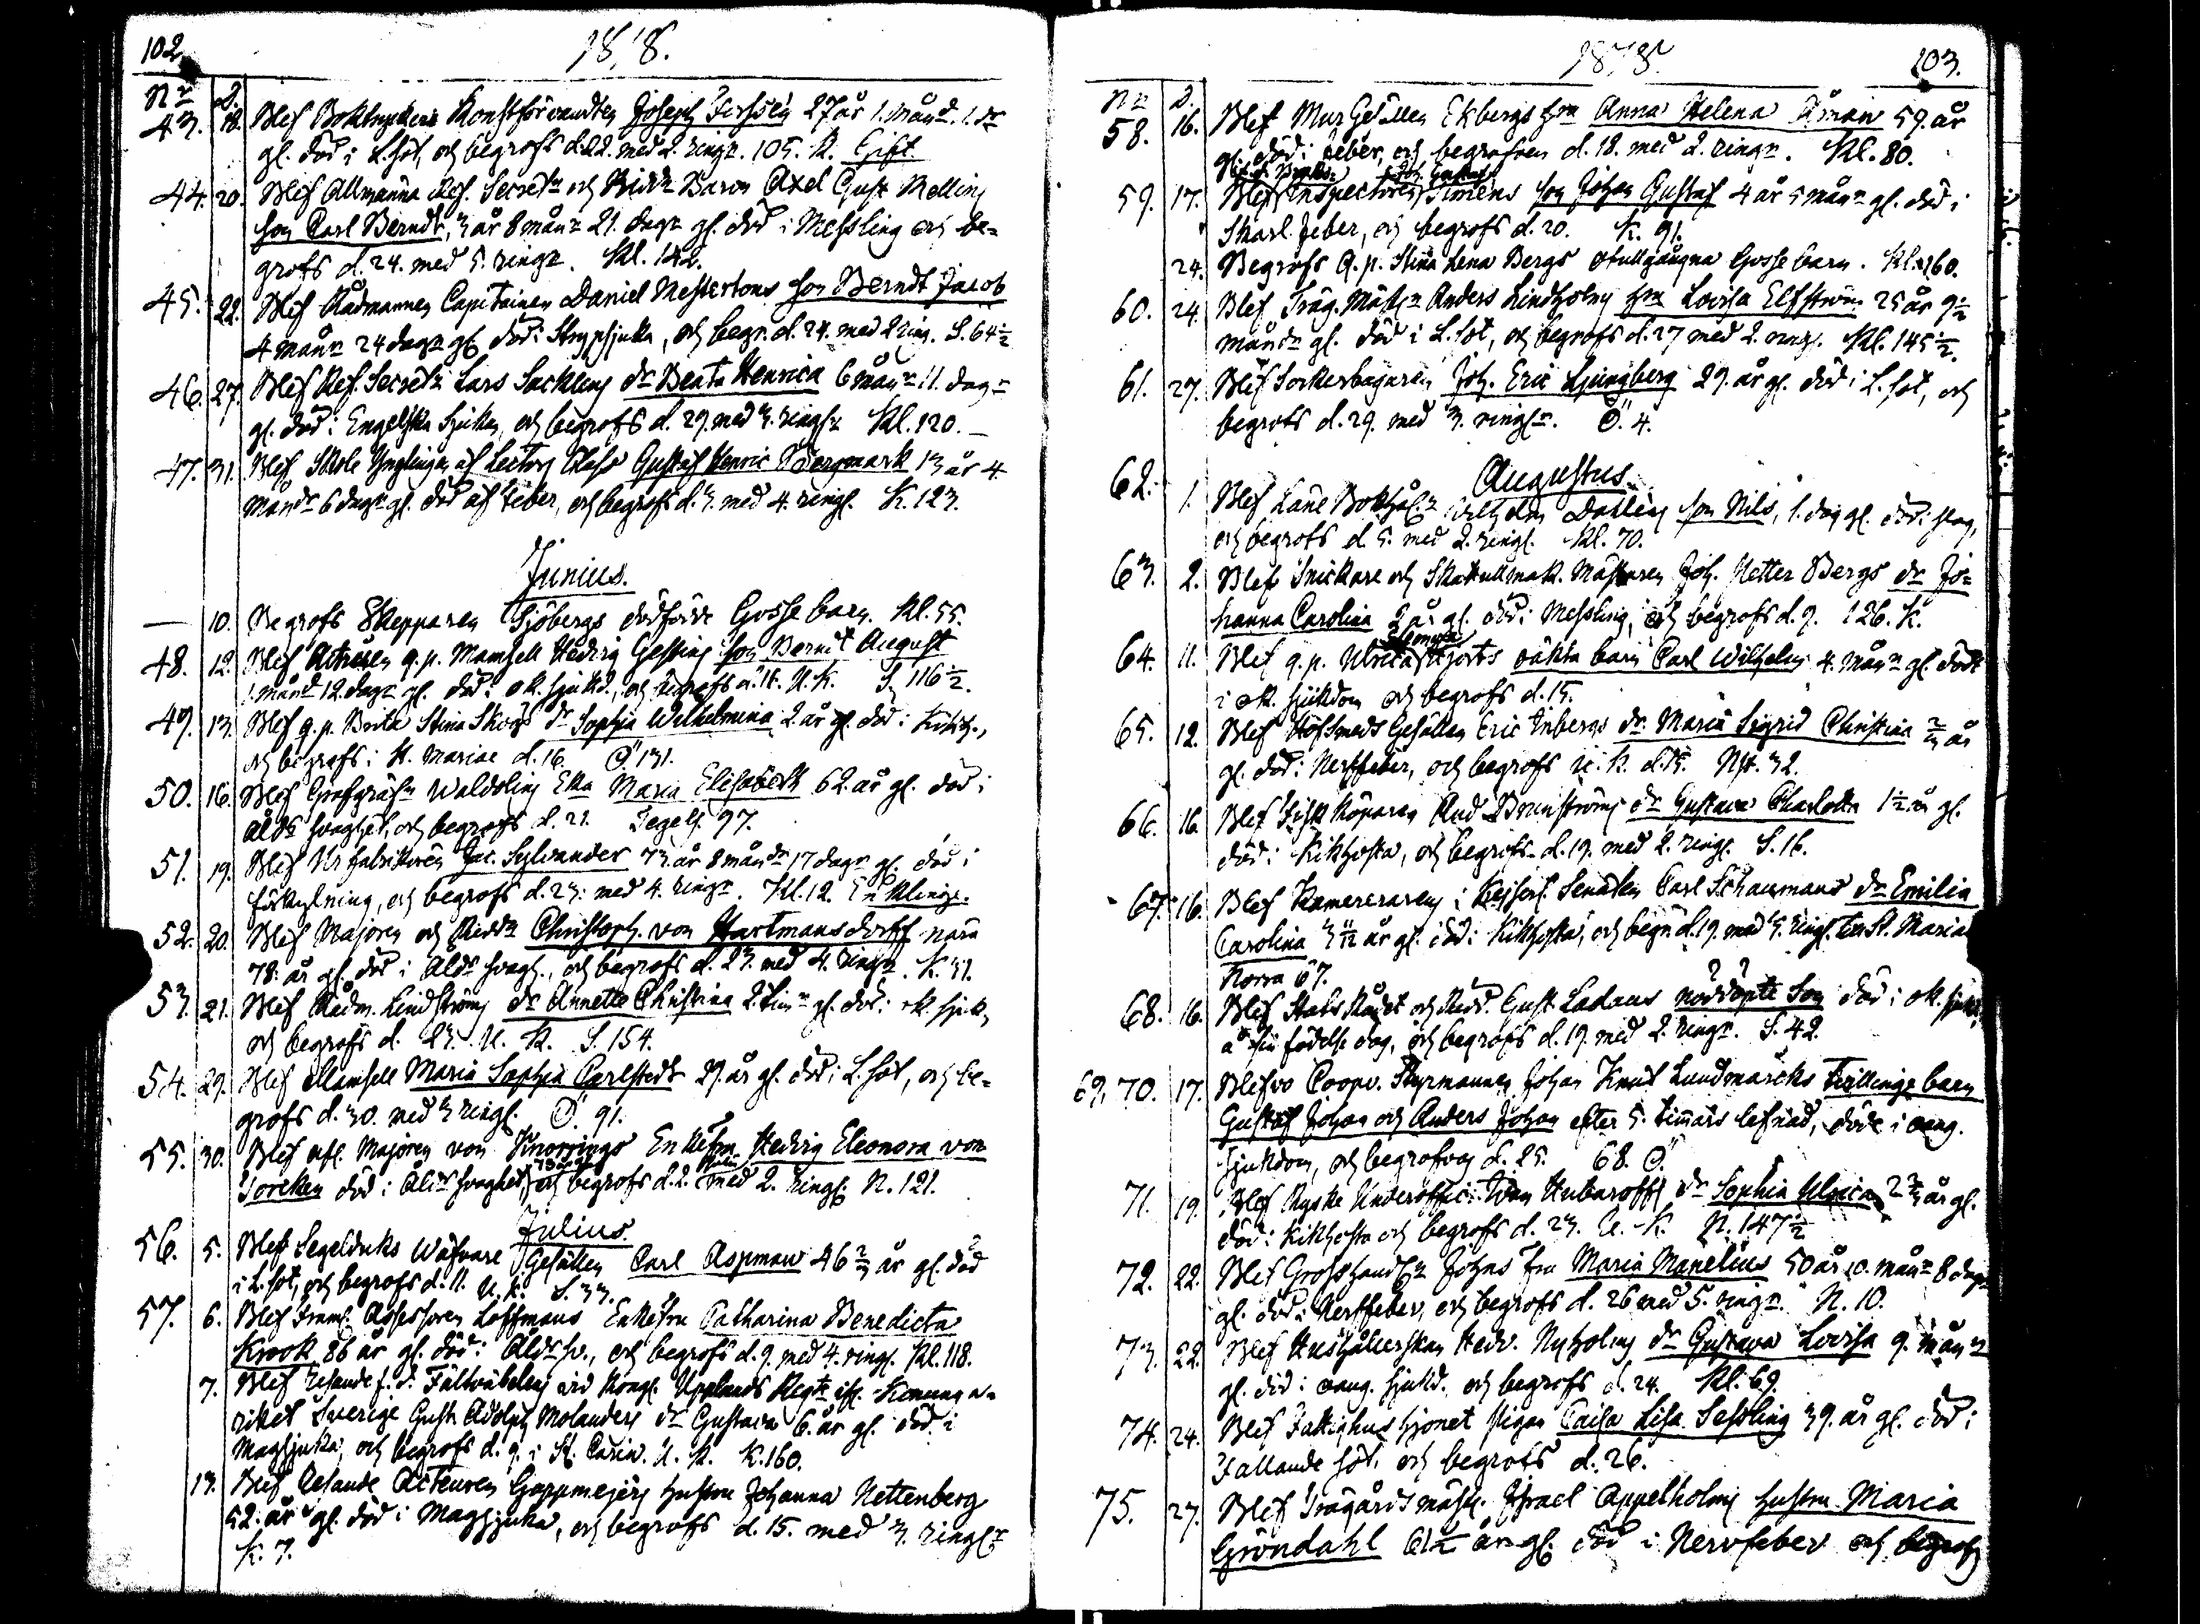 102. 1818.
Nr D.
43. 18. Blef Boktryckeri Konstförvandten Joseph 27 år 1. månd. 1. dr
gl. död i L.sot, och begrofs d. 22. med 2. ringn. 105. K. Gift.
44. 20. Blef Allmänna Ref. Secret: och Ridd: Baron Axel Gust Mellins
son Carl Berndt, 3 år 8 månr 21. dagr gl. död i Messling och be-
grofs d. 24. med 5. ringr. Kl. 142.
45. 22. Blef Rådmannen Capitainen Daniel Nestertons son Berndt Jacob
4 månr 24 dagr gl. död i Strypsjuka, och begr. d. 24. med 2 ring. S. 64½
46. 27. Blef Ref. Secret: Lars Sacklins dr Beata Henrica 6 månr 11. dagr
gl. död i Engelska Sjukan, och begrofs d. 29. med 3. ringr Kl. 120.
47. 31. Blef Skole Ynglingen af Lectors Class Gustaf Henric Bergmark 13 år 4
måndr 6 dagr gl. död af feber, och begrofs d. 3. med 4. ringl. K. 123.
Junius.
— 10. Begrofs Skepparen Sjöbergs dödfödde Gosse barn. Kl. 55.
48. 12. Blef q. p. Mamsell Hedvig Gessins son Berndt August
1. månd 12. dagr gl. död i ok. sjukd., och begrofs d. 16. U. K. S. 116½.
49. 13. Blef q. p. Brita Stina Skogs dr Sophia Wilhelmina 2 år gl. död i Kikh.,
och begrofs i St. Mariae d. 16. Ö. 131.
50. 16. Blef Waldolins Eka Maria Elisabeth 62. år gl. död i
Ålds svaghet, och begrofs d. 21. Tegels. 97.
51. 19. Blef Ur fabrikören Jac. Sylvander 73. år 8 måndr 17 dagr gl. död i
förkylning, och begrofs d. 23. med 4. ringr. Kl. 12. Enkling.
52. 20. Blef Majoren och Riddr Christoph. von Hartmansdorff nära
78. år gl. död i Ålds svagh., och begrofs d. 23. med 4. ringr. K. 31.
53. 21. Blef Rådm. Lindströms dr Annette Christina 2 tim: gl. död i ok. sjuk.
och begrofs d. 23. U. K. S. 154.
54. 29. Blef Mamsell Maria Sophia Carlstedt 29. år gl. död i L. sot, och be-
grofs d. 30. med 3 ringl. Ö. 91.
55. 30. Blef afl. Majoren von Knorrings Enkefru Hedvig Eleonora von
Torcken död i Ålds svaghet, och begrofs d. 2. Julii med 2. ringl. N. 121.
Julius.
56. 5. Blef Segelduks Wäfvare Gesällen Carl Aspman 46 2/3 år gl. död
i L. sot, och begrofs d. 11. U. K. S. 33.
57. 6. Blef framl. Assessoren Loffmans Enkefru Catharina Benedicta
Krook 86 år gl. död i Åldr sv., och begrofs d. 9. med 4. ringl. Kl. 118.
7. Blef resande f. d. Fältväbeln vid Kongl. Upplands Regte ifr. Konunga-
riket Sverige Gust. Adolph Molanders dr Gustava 6. år gl. död i
Magsjuka, och begrofs d. 9. i St. Carin. U. K. K. 160.
13. Blef Resande Acteuren Goppmejers hustru Johanna Nettenberg
52. år gl. död i Magsjuka, och begrofs d. 15. med 3. ringlr
K. 7.
1818. 103.
Nr D.
58. 16. Blef Mur Gesällen Ekbergs hru Anna Helena Åman 59. år
gl. död i feber, och begrofven d. 18. med 2. ringr. Kl. 80.
59. 17. Blef Inspectoren Simens son Johan Gustaf 4 år 5 månr gl. död i
Skarl. feber, och begrofs d. 20. K. 91.
24. Begrofs Q. p. Stina Lena Bergs ofullgångna Gosse barn. Kl. 160.
60. 24. Blef Träg. Mästr Anders Lindholms hru Lovisa Elfström 25 år 9½
måndr gl. död i L. sot, och begrofs d. 27 med 2. ringl. Kl. 145½.
61. 27. Blef Sockerbagaren Joh. Eric Ljungberg 29. år gl. död i L. sot, och
begrofs d. 29. med 3. ringlr. Ö. 4.
Augustus.
62. 1. Blef Läne Bokhålr Wilhelm Dahlins son Nils, 1. dag gl. död i slag,
och begrofs d. 5. med 2. ringl. Kl. 70.
63. 2. Blef Snickare och Skatullmak. Mästaren Joh. Petter Bergs dr Jo-
hanna Carolina 2 år gl. död i Messling, och begrofs d. 7. 126. K.
64. 11. Blef q. p. Ulrica Hjorts oäkta barn Carl Wilhelm 4. månr gl. död
i ok. sjukdom och begrofs d. 15.
65. 12. Blef Hofsmeds Gesällen Eric Enbergs dr. Maria Sigrid Christina 2/3 år
gl. död i Nerffeber, och begrofs U. K. d. 15. Nst. 32.
66. 16. Blef Fisk Köparen And. Brunströms dr Gustava Charlotta 1½ år gl.
död i Kikhosta, och begrofs d. 19. med 2. ringl. S. 16.
67. 16. Blef Kamereraren i Kejserl. Senaten Carl Schaumans dr Emilia
Carolina 3 11/12 år gl. död i Kikhosta, och begr. d. 19. med 5. ringl. Maria
Norra 67.
68. 16. Blef Stats Rådet och Ridd. Gust. Ladaus nöddöpte Son död i ok. sjukd.
å sin födelse dag, och begrofs d. 19. med 2. ringr. S. 42.
69, 70. 17. Blefvo Coopv. Styrmannen Johan Knut Lundmarcks tvillinge barn
Gustaf Johan och Anders Johan efter 5. timars lefnad, döde i oang.
sjukdom, och begrofvos d. 25. 68. Ö.
71. 19. Blef Ryske Underoffic: Iwan Hubaroffs dr Sophia Ulrica 2 2/3 år gl.
död i Kikhosta och begrofs d. 23. U. K. N. 147½
72. 22. Blef Grosshandlr Johns fru Maria Manelius 50 år 10. månr 8 dagr
gl. död i Nerffeber, och begrofs d. 26 med 5. ringr. N. 10.
73. 22. Blef Hushållerskan Hedv. Nyholms dr Gustava Lovisa 9. månr
gl. död i oang. sjukd. och begrofs d. 24. Kl. 69.
74. 24. Blef Fattighus hjonet Pigan Caisa Lisa Sessling 39. år gl. död i
Fallande sot, och begrofs d. 26.
75. 27. Blef Trägårdsmäst. Israel Appelholms hustru Maria
Gröndahl 61½ år gl. död i Nervfeber och begrofs